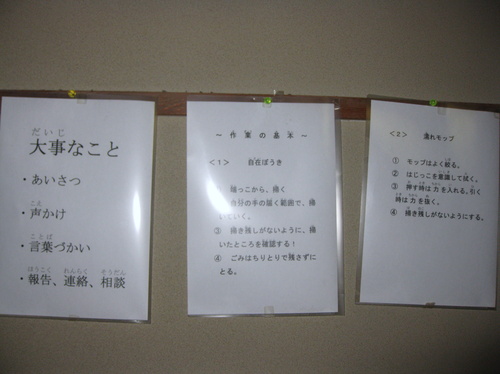 だいじ
大事なこと
・あいさつ
こえ
・声かけ
ことば
・言葉づかい
ほうこく れんらく そうだん
・報告、連絡、相談
～ 作 業 の 基 本 ～
<1> 自在ぼうき
① 端っこから、掃く
② 自分の手の届く範囲で、掃
いていく。
③ 掃き残しがないように、掃
いたところを確認する！
④ ごみはちりとりで残さずに
とる。
<2> 濡れモップ
① モップはよく絞る。
② はじっこを意識して拭く。
③ 押す時は力を入れる、引く
時は力を抜く。
④ 掃き残しがないようにする。